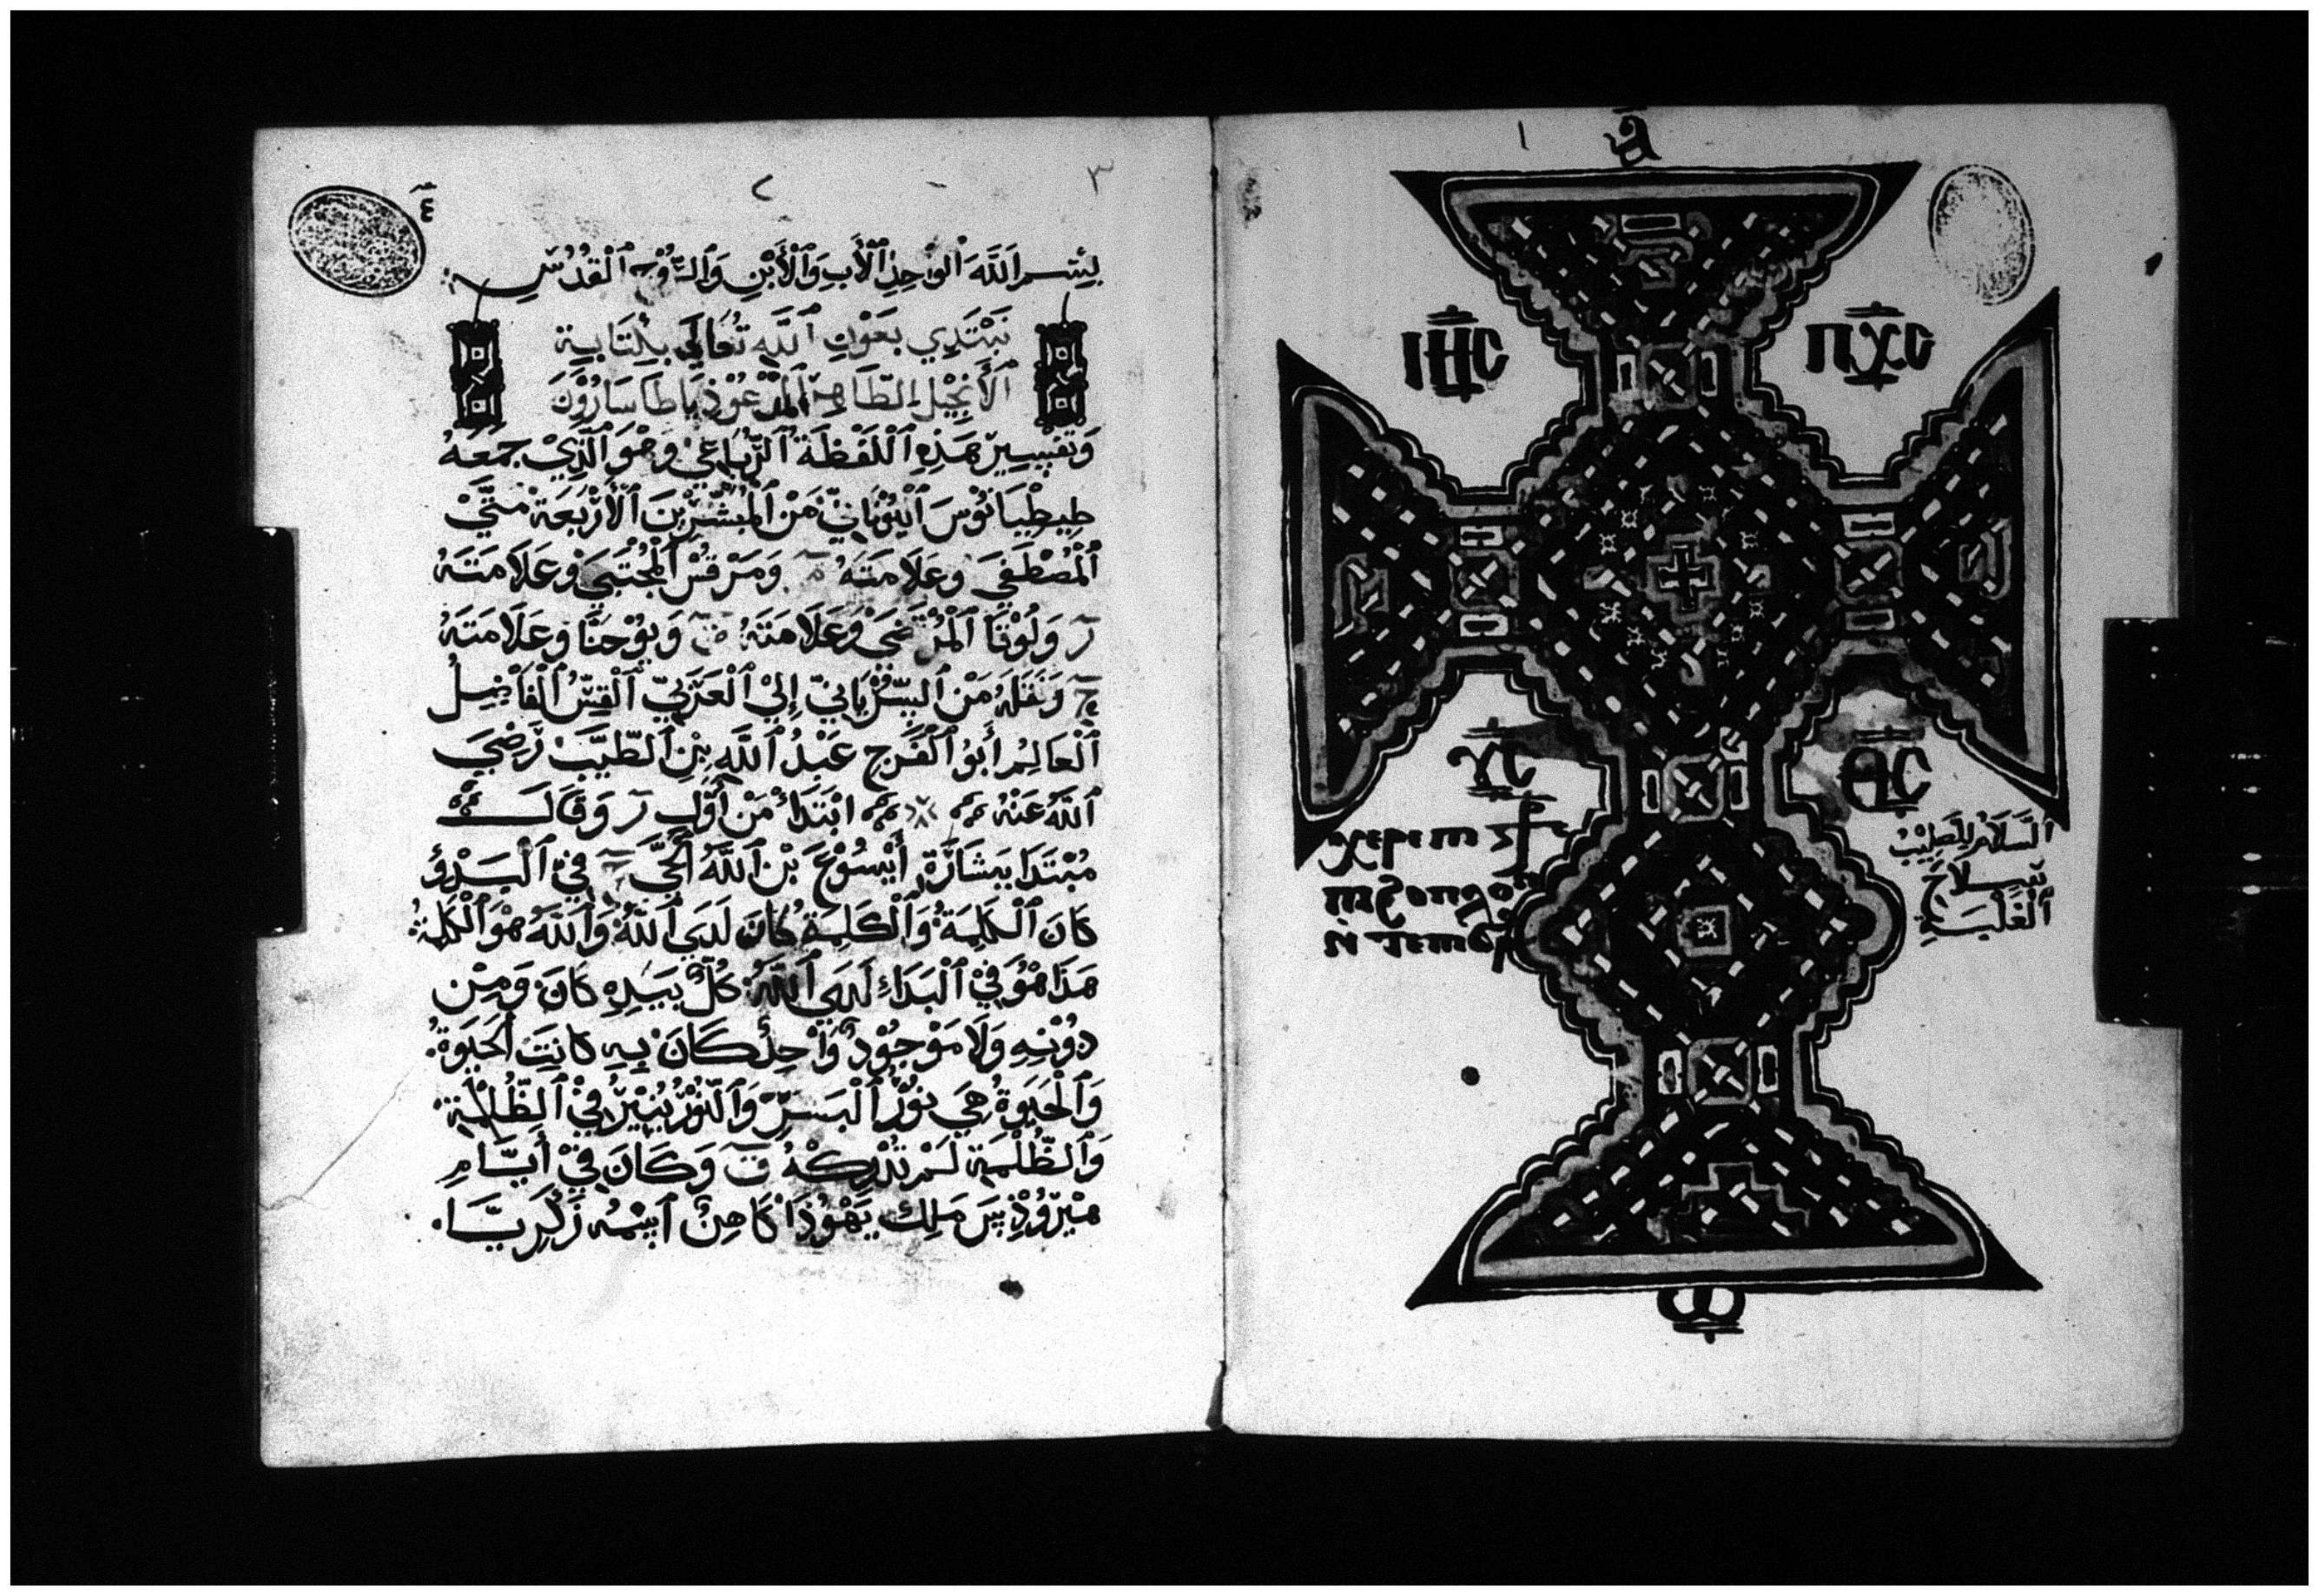 ١
ⲁ̅
ⲓⲏ̅ⲥ ⲡⲭ̅ⲥ
ⲩ̅ⲥ ⲑ̅ⲥ
ⲭⲉⲣⲉ ⲡⲓ
السَّلَامُ للصَّلِيْبُ
سِلَاحَ
الْغَلَبَةِ
ⲱ
٣
بِسْمِ اللَّهِ الْوَاحِدِ الْأَبِ وَالْأَبْنِ وَالرُّوْحِ الْقُدُسِ
نَبْتَدِي بِعَوْنِ اللَّهِ تَعَالَى بِكِتَابِةِ
الْأَنْجِيْلِ الطَّاهِرِ الْمَدْعُوْ ذِيَاطَاسَارُوْنَ
وَتَفْسِيرْ هَذِهِ اللَّفْظَةُ الرُّبَاعِيْ وَهْوَ الَّذِيْ جَمَعَهُ
طِيطْيَانُوْسَ الْيُوْنَانِيّ مَنْ الْمُبَشِّرِيْنَ الْأَرْبَعَةْ مَتَّيْ
الْمُصْطَفَيَ وعَلَامَتَهُ م وَمَرْقُسْ الْمُجْتَبَيْ وعَلَامَتَهُ
ر وَلُوْقَا الْمُرْتَضَيَ وعَلَامَتَهُ ق وَيوْحَنَّا وعَلَامَتَهُ
ح وَنَقَلَهُ مَنْ السُّرْيَانِيّ إِليْ الْعَرَبِيّ الْقِسُّ الْفَاضِلُ
الْعَالِمُ أَبُو الْفَرَجِ عَبْدُ اللَّهِ بِنِ الطَّيِّبْ رَضِيَ
اللَّهُ عَنْهُ ابْتَدَاْ مَنْ أَوَّلِ ر وَقَالَ
مُبْتَدَا بِشَارَةِ أَيْسُوْعَ بْنِ اللَّهِ الْحَيّ ح فِيْ الْبَدْؤُ
كَانَ الْكَلِمَةُ وَالْكَلِمَةُ كَانَ لَدَيَ اللَّهُ وَاللَّهُ هْوَ الْكَلِمَةُ
هَذَا هُوَ فِيْ الْبَدَاءِ لَدَيَ اللَّهُ كُلٌّ بِيَدِهِ كَانَ وَمِنْ
دُوْنِهِ وَلَا مَوْجُوْدٌ وَاحِدٌ كَانَ بِهِ كَانِتَ الْحَيَوةُ
وَالْحَيَوةُ هِيَ نُوْرُ الْبَشَرِ وَالنُّوْرُ يُنِيْرُ فِيْ الظُّلْمَةِ
وَالظُّلْمَةِ لَمْ تُدْرِكْهُ ق وَكَانَ فِيْ أَيَّامِ
هيْرُوْدِيسَ مَلِك يَهُوْذَا كَاهِنٌ اسْمُه زَكَرِيَّا